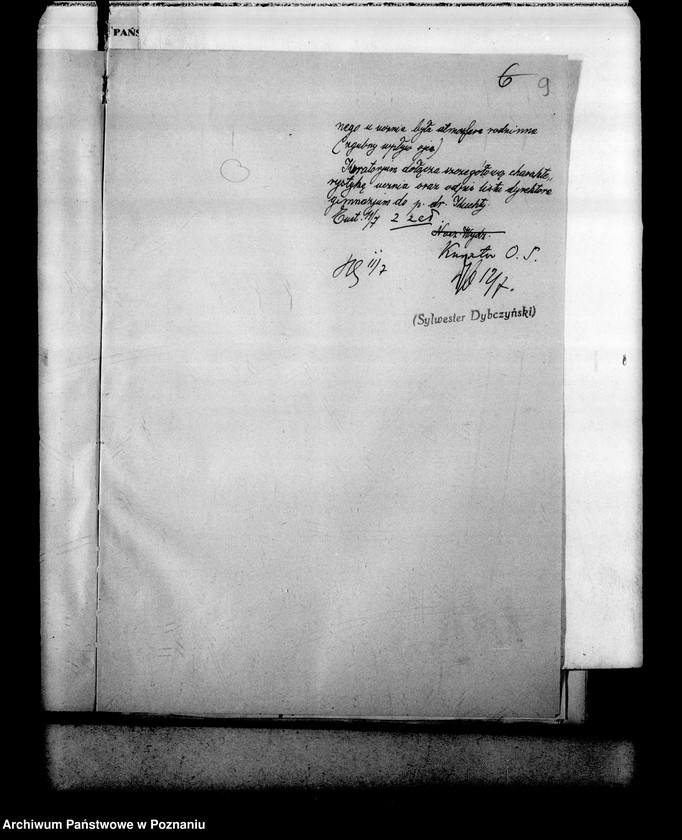 PAŃS
6 9
nego u ucznia była atmosfera rodzinna
(zgubny wpływ ojca)
Kuratorjum dołącza szczegółową charakte-
rystykę ucznia oraz odpis listu dyrektora
gimnazjum do p. dr.
11/7 2 zał.
Nacz. Wydz.
Kurator O. S.
11/7
12/7.
(Sylwester Dybczyński)
Archiwum Państwowe w Poznaniu